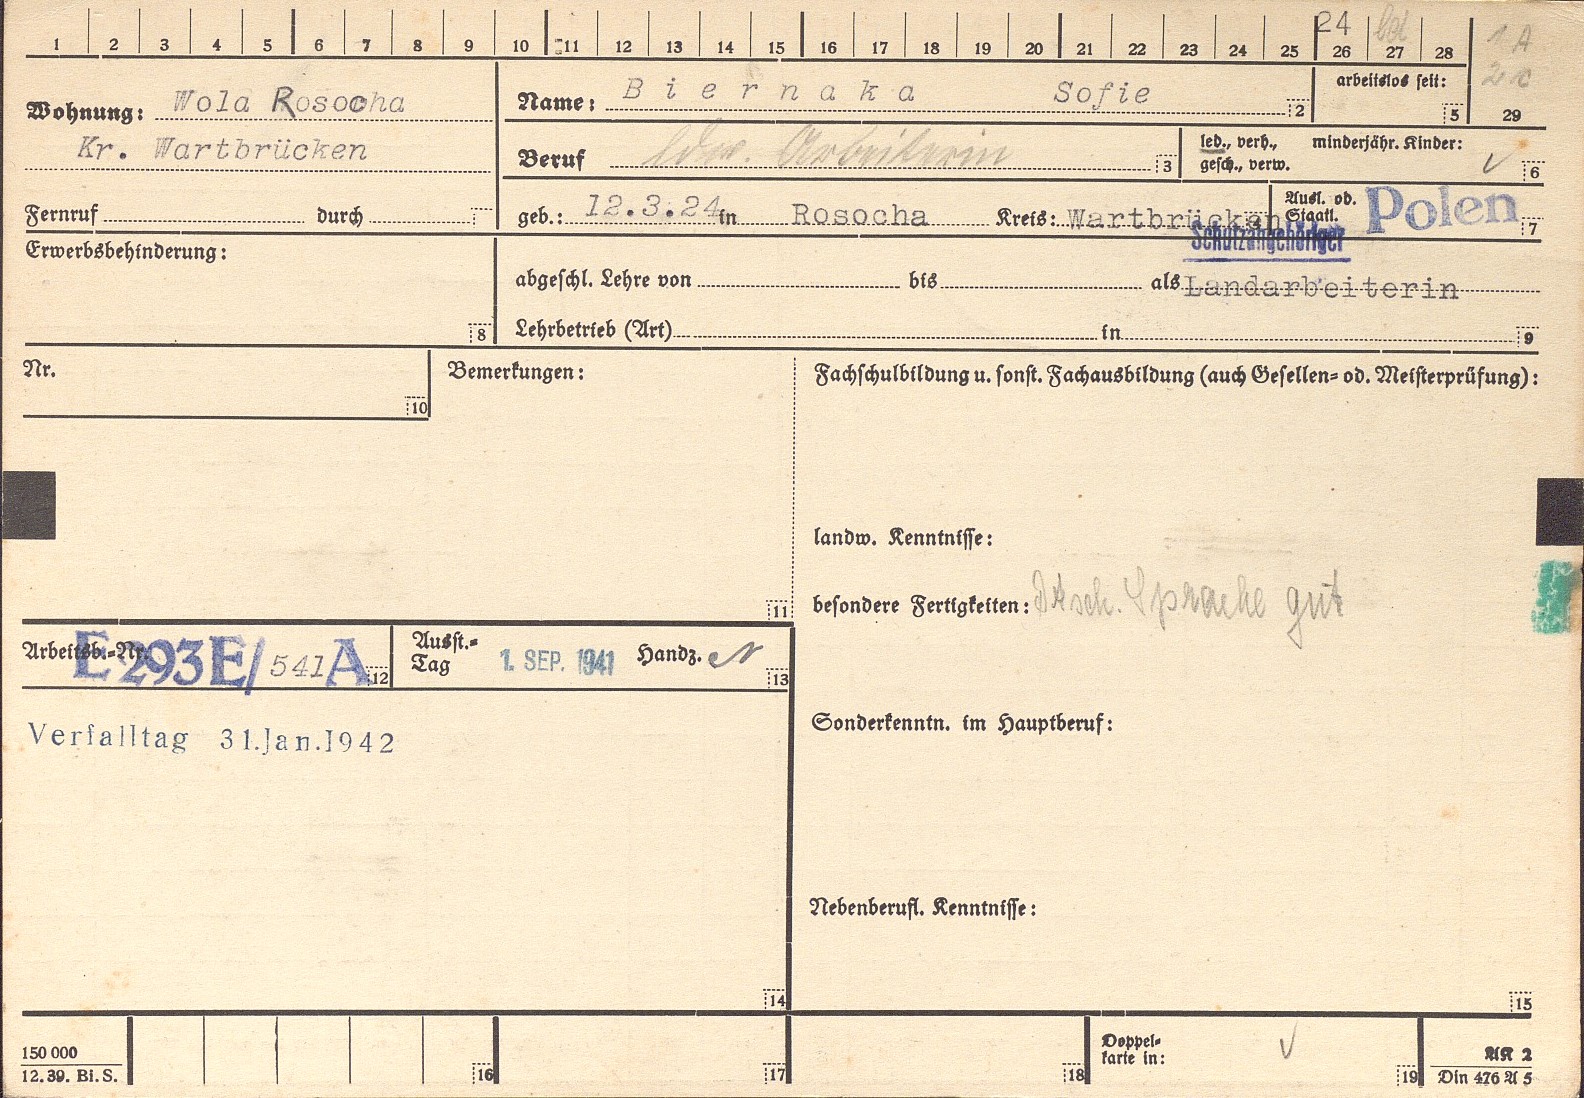 1 2 3 4 5 6 7 8 9 10 11 12 13 14 15 16 17 18 19 20 21 22 23 24 25 26 27 28 29
24
1 A
Wohnung: Wola Rosocha
Kr. Wartbrücken
Name: Biernaka Sofie 2
arbeitslos seit: 5
Beruf ldw. Arbeiterin 3
led., verh., gesch., verw.
minderjähr. Kinder: 6
Fernruf durch
geb.: 12.3.24 in Rosocha Kreis: Wartbrücken
Ausl. od. Staatl. Polen 7
Schutzangehöriger
Erwerbsbehinderung: 8
abgeschl. Lehre von bis als Landarbeiterin
Lehrbetrieb (Art) in 9
Nr. 10
Bemerkungen: 11
Fachschulbildung u. sonst. Fachausbildung (auch Gesellen= od. Meisterprüfung):
landw. Kenntnisse:
besondere Fertigkeiten: Dtsch. Sprache gut
Arbeitsb.=Nr. E 293E/541A 12
Ausst.=Tag 1. SEP. 1941 Handz. 13
Verfalltag 31.Jan.1942
14
Sonderkenntn. im Hauptberuf:
Nebenberufl. Kenntnisse:
15
150 000
12.39. Bi.S.
16 17 18
Doppel=
karte in: 19
AK 2
Din 476 A 5